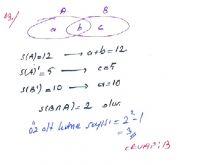 19./
A B
a b c
s(A)=12 → a+b=12
s(A)'=5 → c=5
s(B')=10 → a=10
s(B∩A)=2 olur.
öz alt küme sayısı = 2²-1
= 3
CEVAP: B